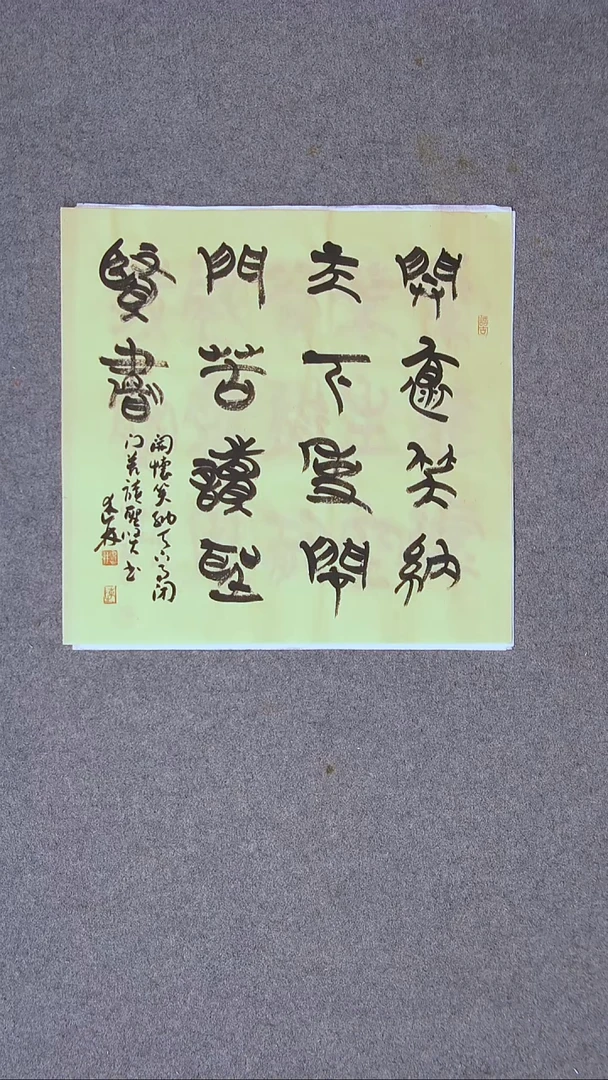 開懷笑納
天下事閉
門苦讀聖
賢書
開懷笑納天下事闭
门苦读圣贤书